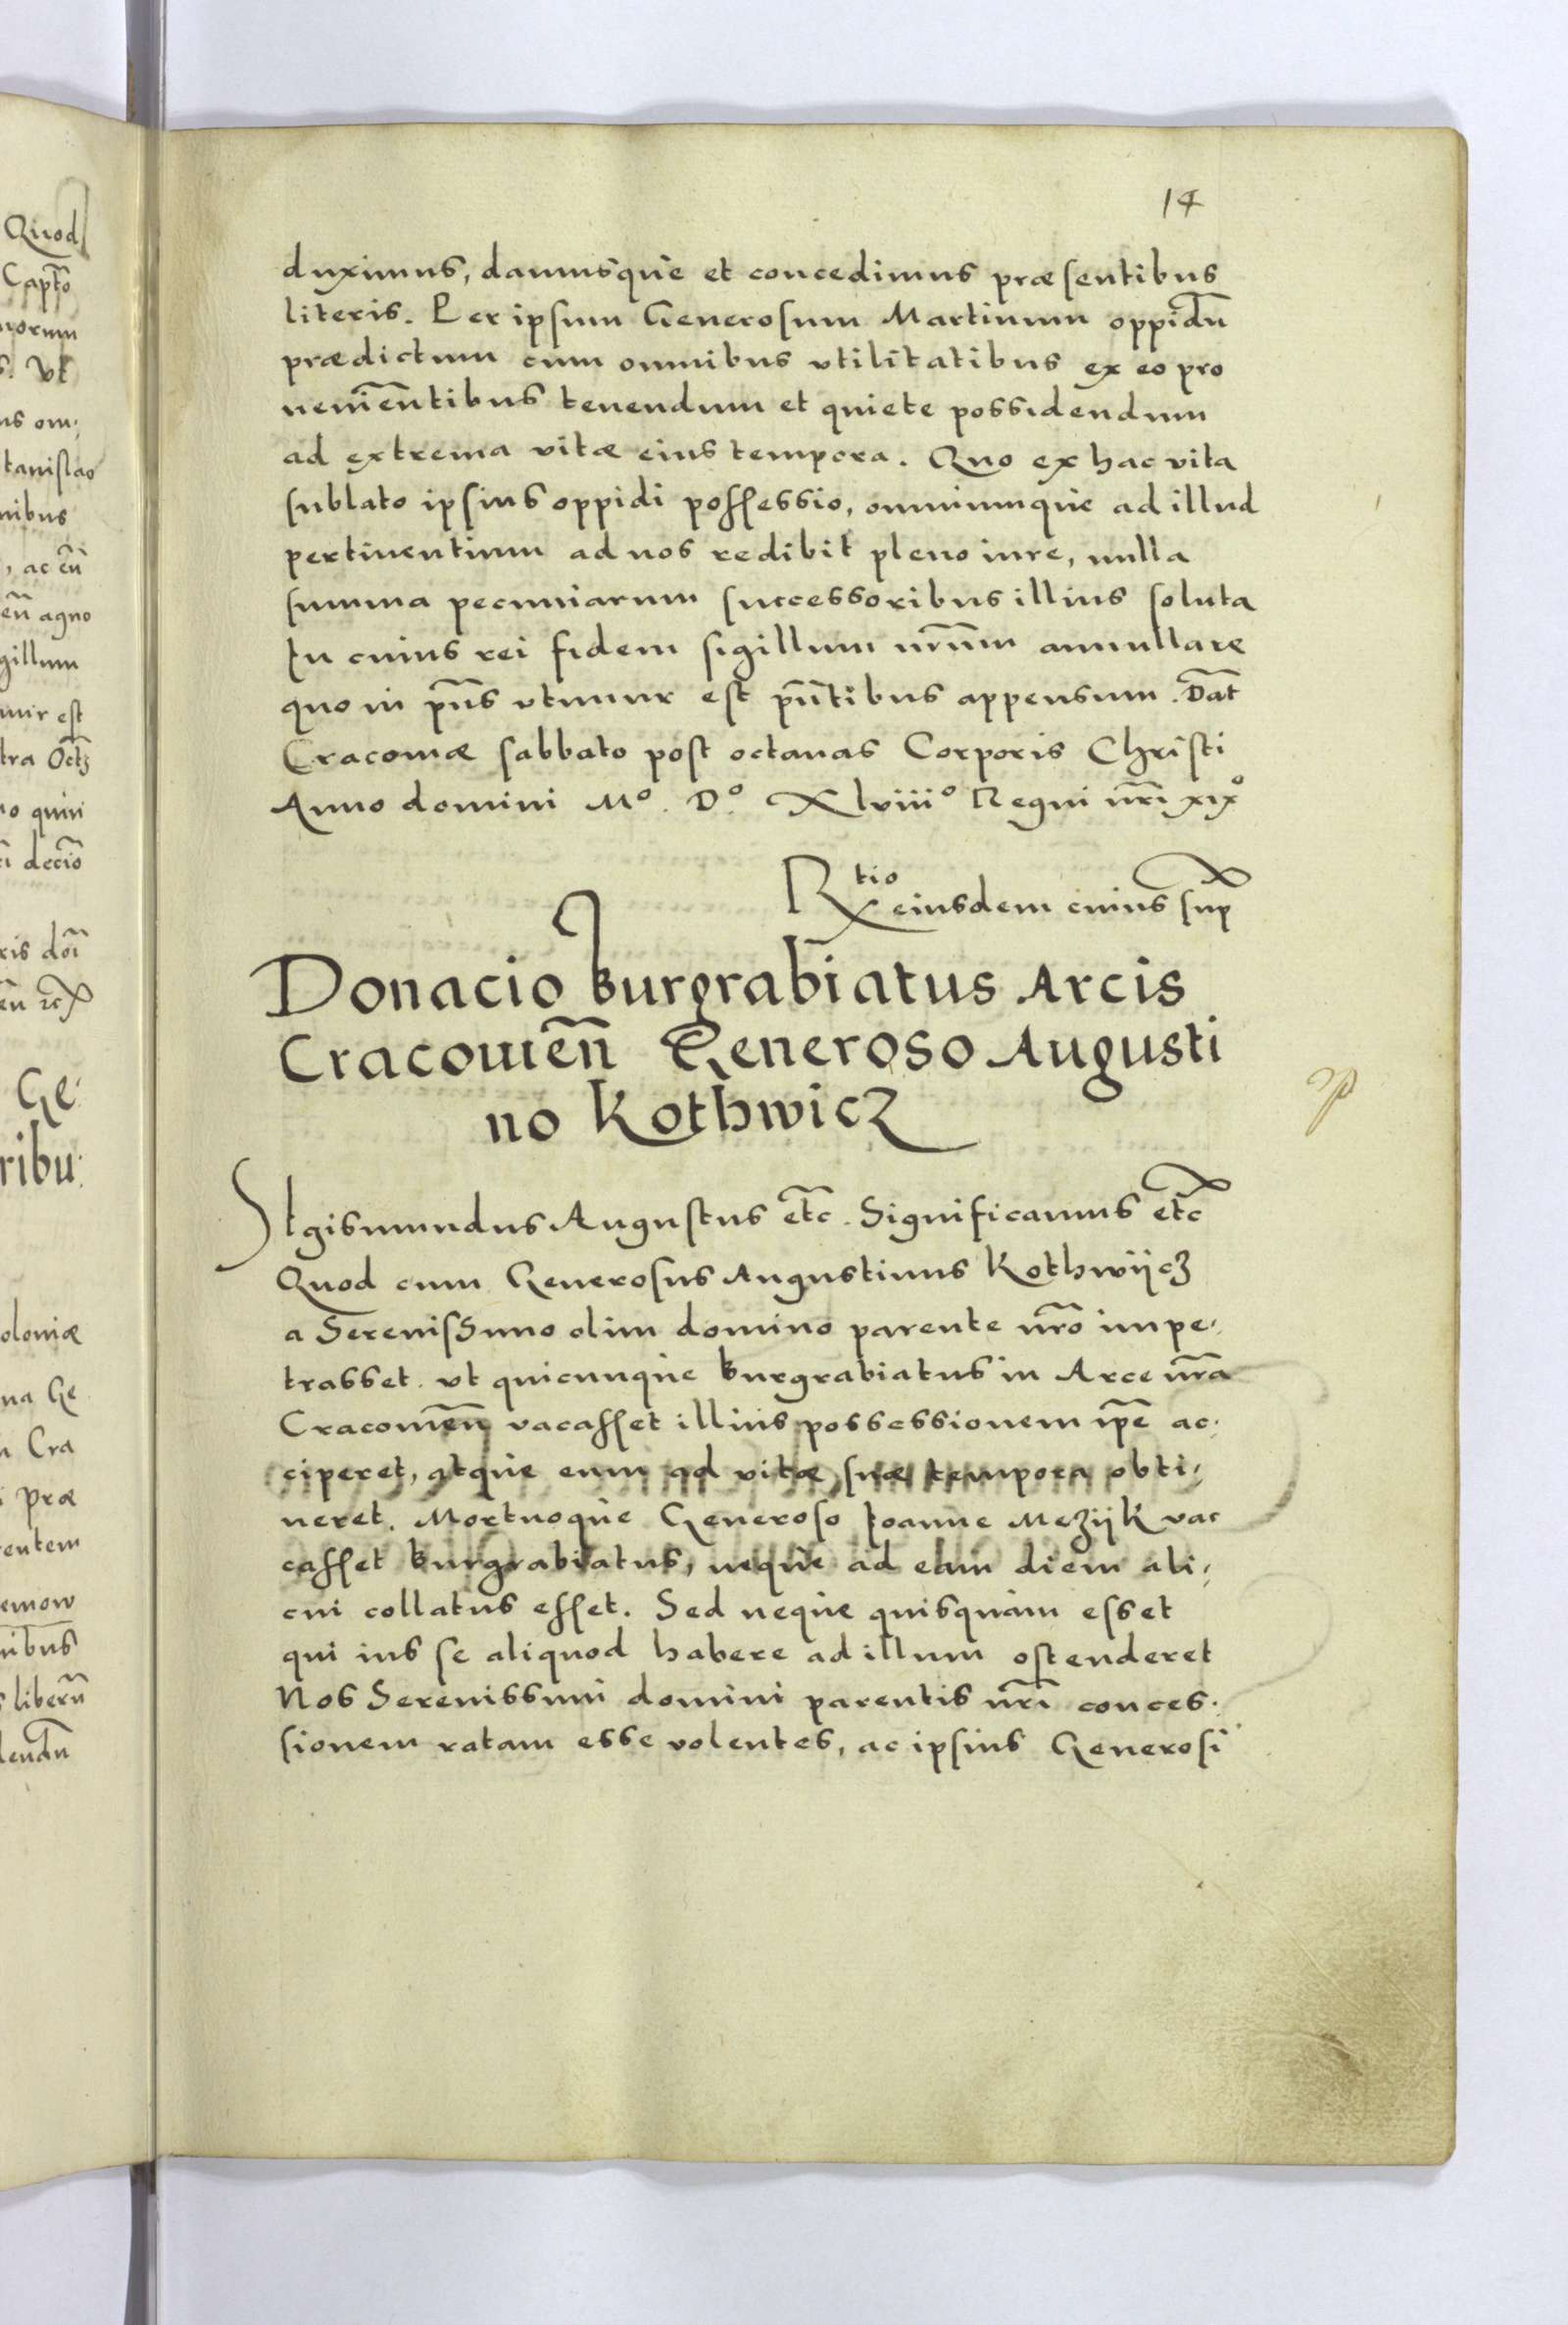 14
duximus, damusque et concedimus præsentibus
literis. Per ipsum Generosum Martinum oppidū
prædictum cum omnibus vtilitatibus ex eo pro
venientibus tenendum et quiete possidendum
ad extrema vitæ eius tempora. Quo ex hac vita
sublato ipsius oppidi possessio, omniumque ad illud
pertinentium ad nos redibit pleno iure, nulla
summa pecuniarum successoribus illius soluta
In cuius rei fidem sigillum nrūm annullare
quo in pñs vtimur est pñtibus appensum. Dat̄
Cracouiæ sabbato post octauas Corporis Christi
Anno domini Mº. Dº. Xlviiiº Regni nr̄i xixº
Rtio eiusdem cuius sup̄
Donacio Burgrabiatus Arcis
Cracouien̄ Generoso Augusti
no Kothwicz
SIgismundus Augustus etc̄. Significamus etc̄
Quod cum Generosus Augustinus Kothwijcz
a Serenissimo olim domino parente nrō impe,
trasset. vt quicunque Burgrabiatus in Arce nrā
Cracouien̄ vacasset illius possessionem ip̄e ac,
ciperet, atque eum ad vitæ suæ tempora obti,
neret. Mortuoque Generoso Ioanne Mezijk vac
casset Burgrabiatus, neque ad eam diem ali,
cui collatus esset. Sed neque quisquam esset
qui ius se aliquod habere ad illum ostenderet
Nos Serenissimi domini parentis nrī conces,
sionem ratam esse volentes, ac ipsius Generosi
Quod
Capt̄o
norum
Vt
ns om,
tanislao
nibus
, ac cū
en̄ agno
gillum
mur est
tra Oct̄
no quin
deciō
ris doī
Ge,
ribu,
oloniæ
na Ge
Cra
præ
entem
emow
nibus
liberū
lendū